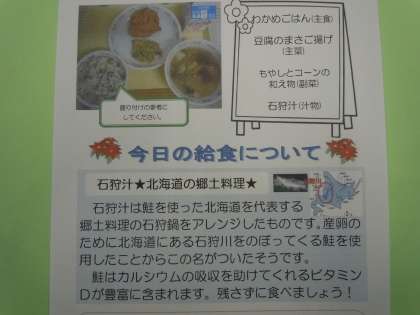 盛り付けの参考に
してください。
わかめごはん(主食)
豆腐のまさご揚げ
(主菜)
もやしとコーンの
和え物(副菜)
石狩汁(汁物)
今日の給食について
石狩汁★北海道の郷土料理★
石狩汁は鮭を使った北海道を代表する
郷土料理の石狩鍋をアレンジしたものです。産卵の
ために北海道にある石狩川をのぼってくる鮭を使
用したことからこの名がついたそうです。
鮭はカルシウムの吸収を助けてくれるビタミン
Dが豊富に含まれます。残さずに食べましょう！